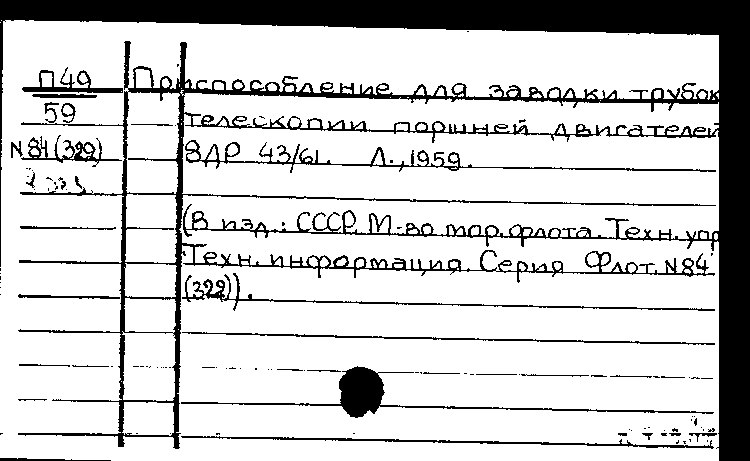 П49 Приспособление для заводки трубок
59 телескопии поршней двигателей
N84(329) 8ДР 43/61. Л., 1959.
2 экз.
(В изд.: СССР. М-во мор. флота. Техн. упр
Техн. информация. Серия Флот. N84
(329)).